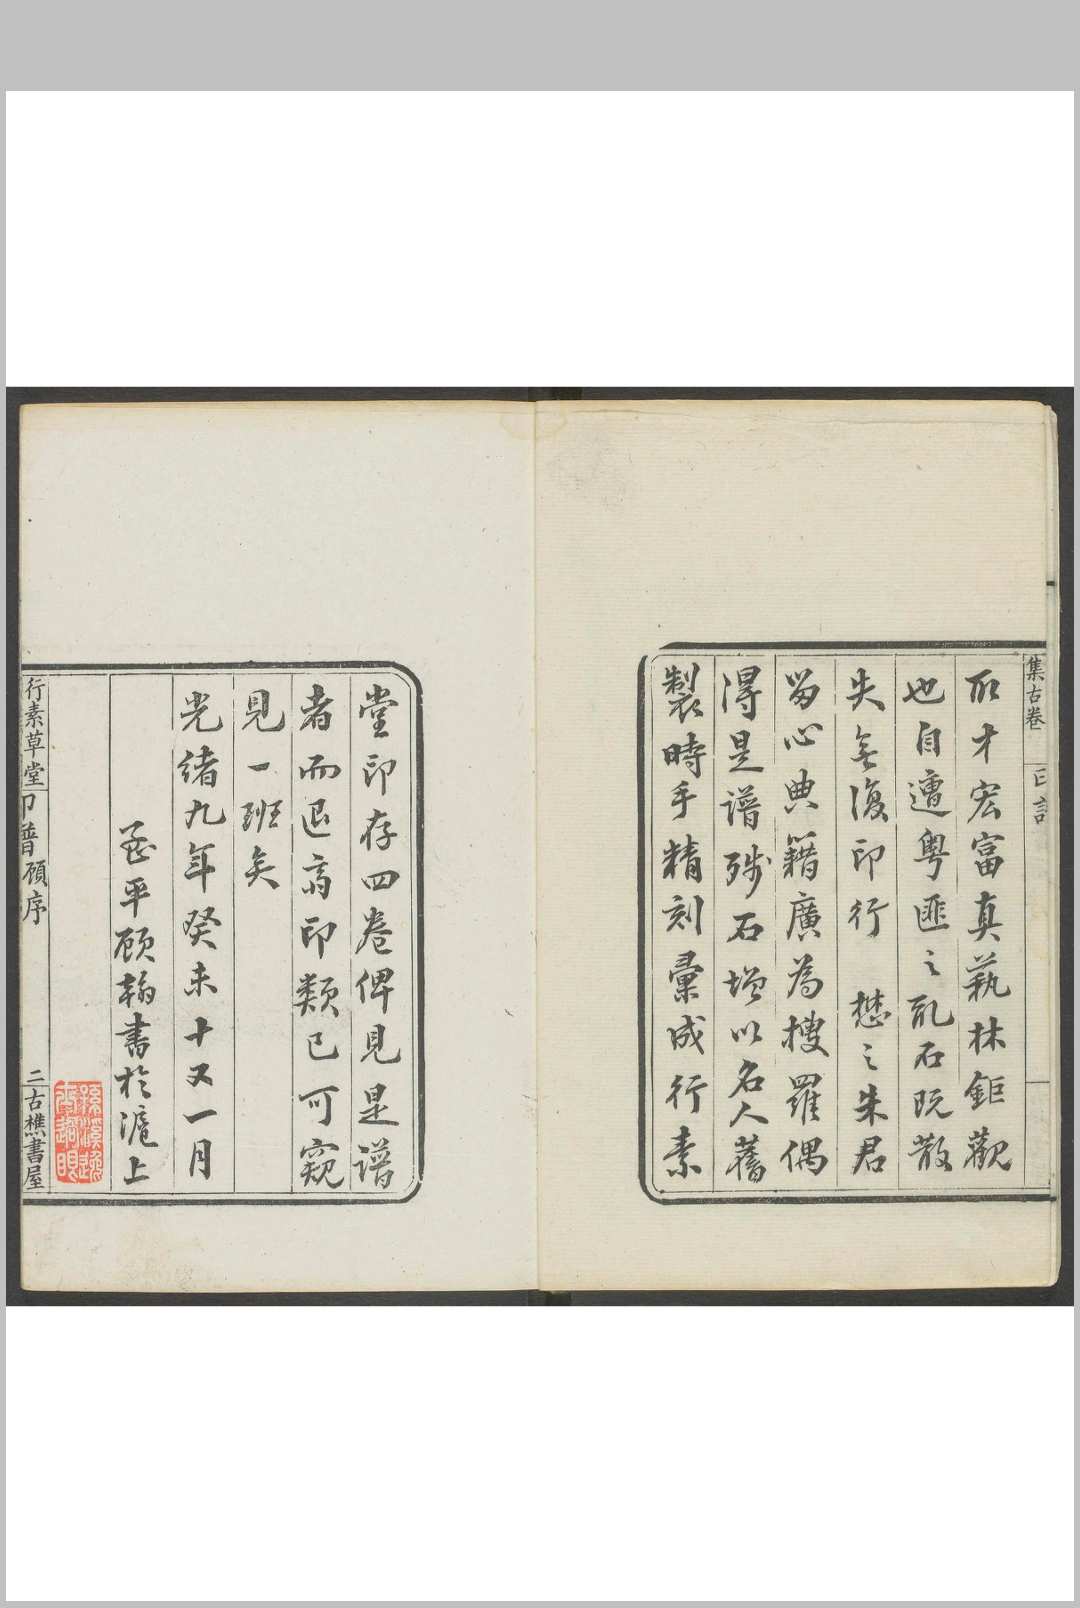 集古卷
取才宏富真執林鉅觀
也自遭粵匪之亂石既散
失無復印行 懋之朱君
留心典籍廣為搜羅偶
得是譜殘石增以名人舊
製時手精刻彙成行素
堂印存四卷俾見是譜
者而退高印類已可窺
見一班矣
光緒九年癸未十又一月
平顧翰書於滬上
行素草堂印譜顧序
二
古樵書屋